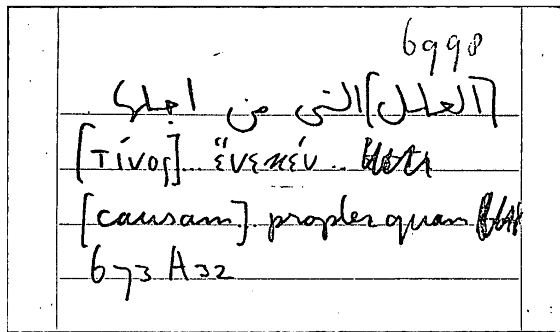 6998
[العلل] التى من اجلها
[τίνος] .. ἕνεκέν ..
[causam] propter quam
673 A32